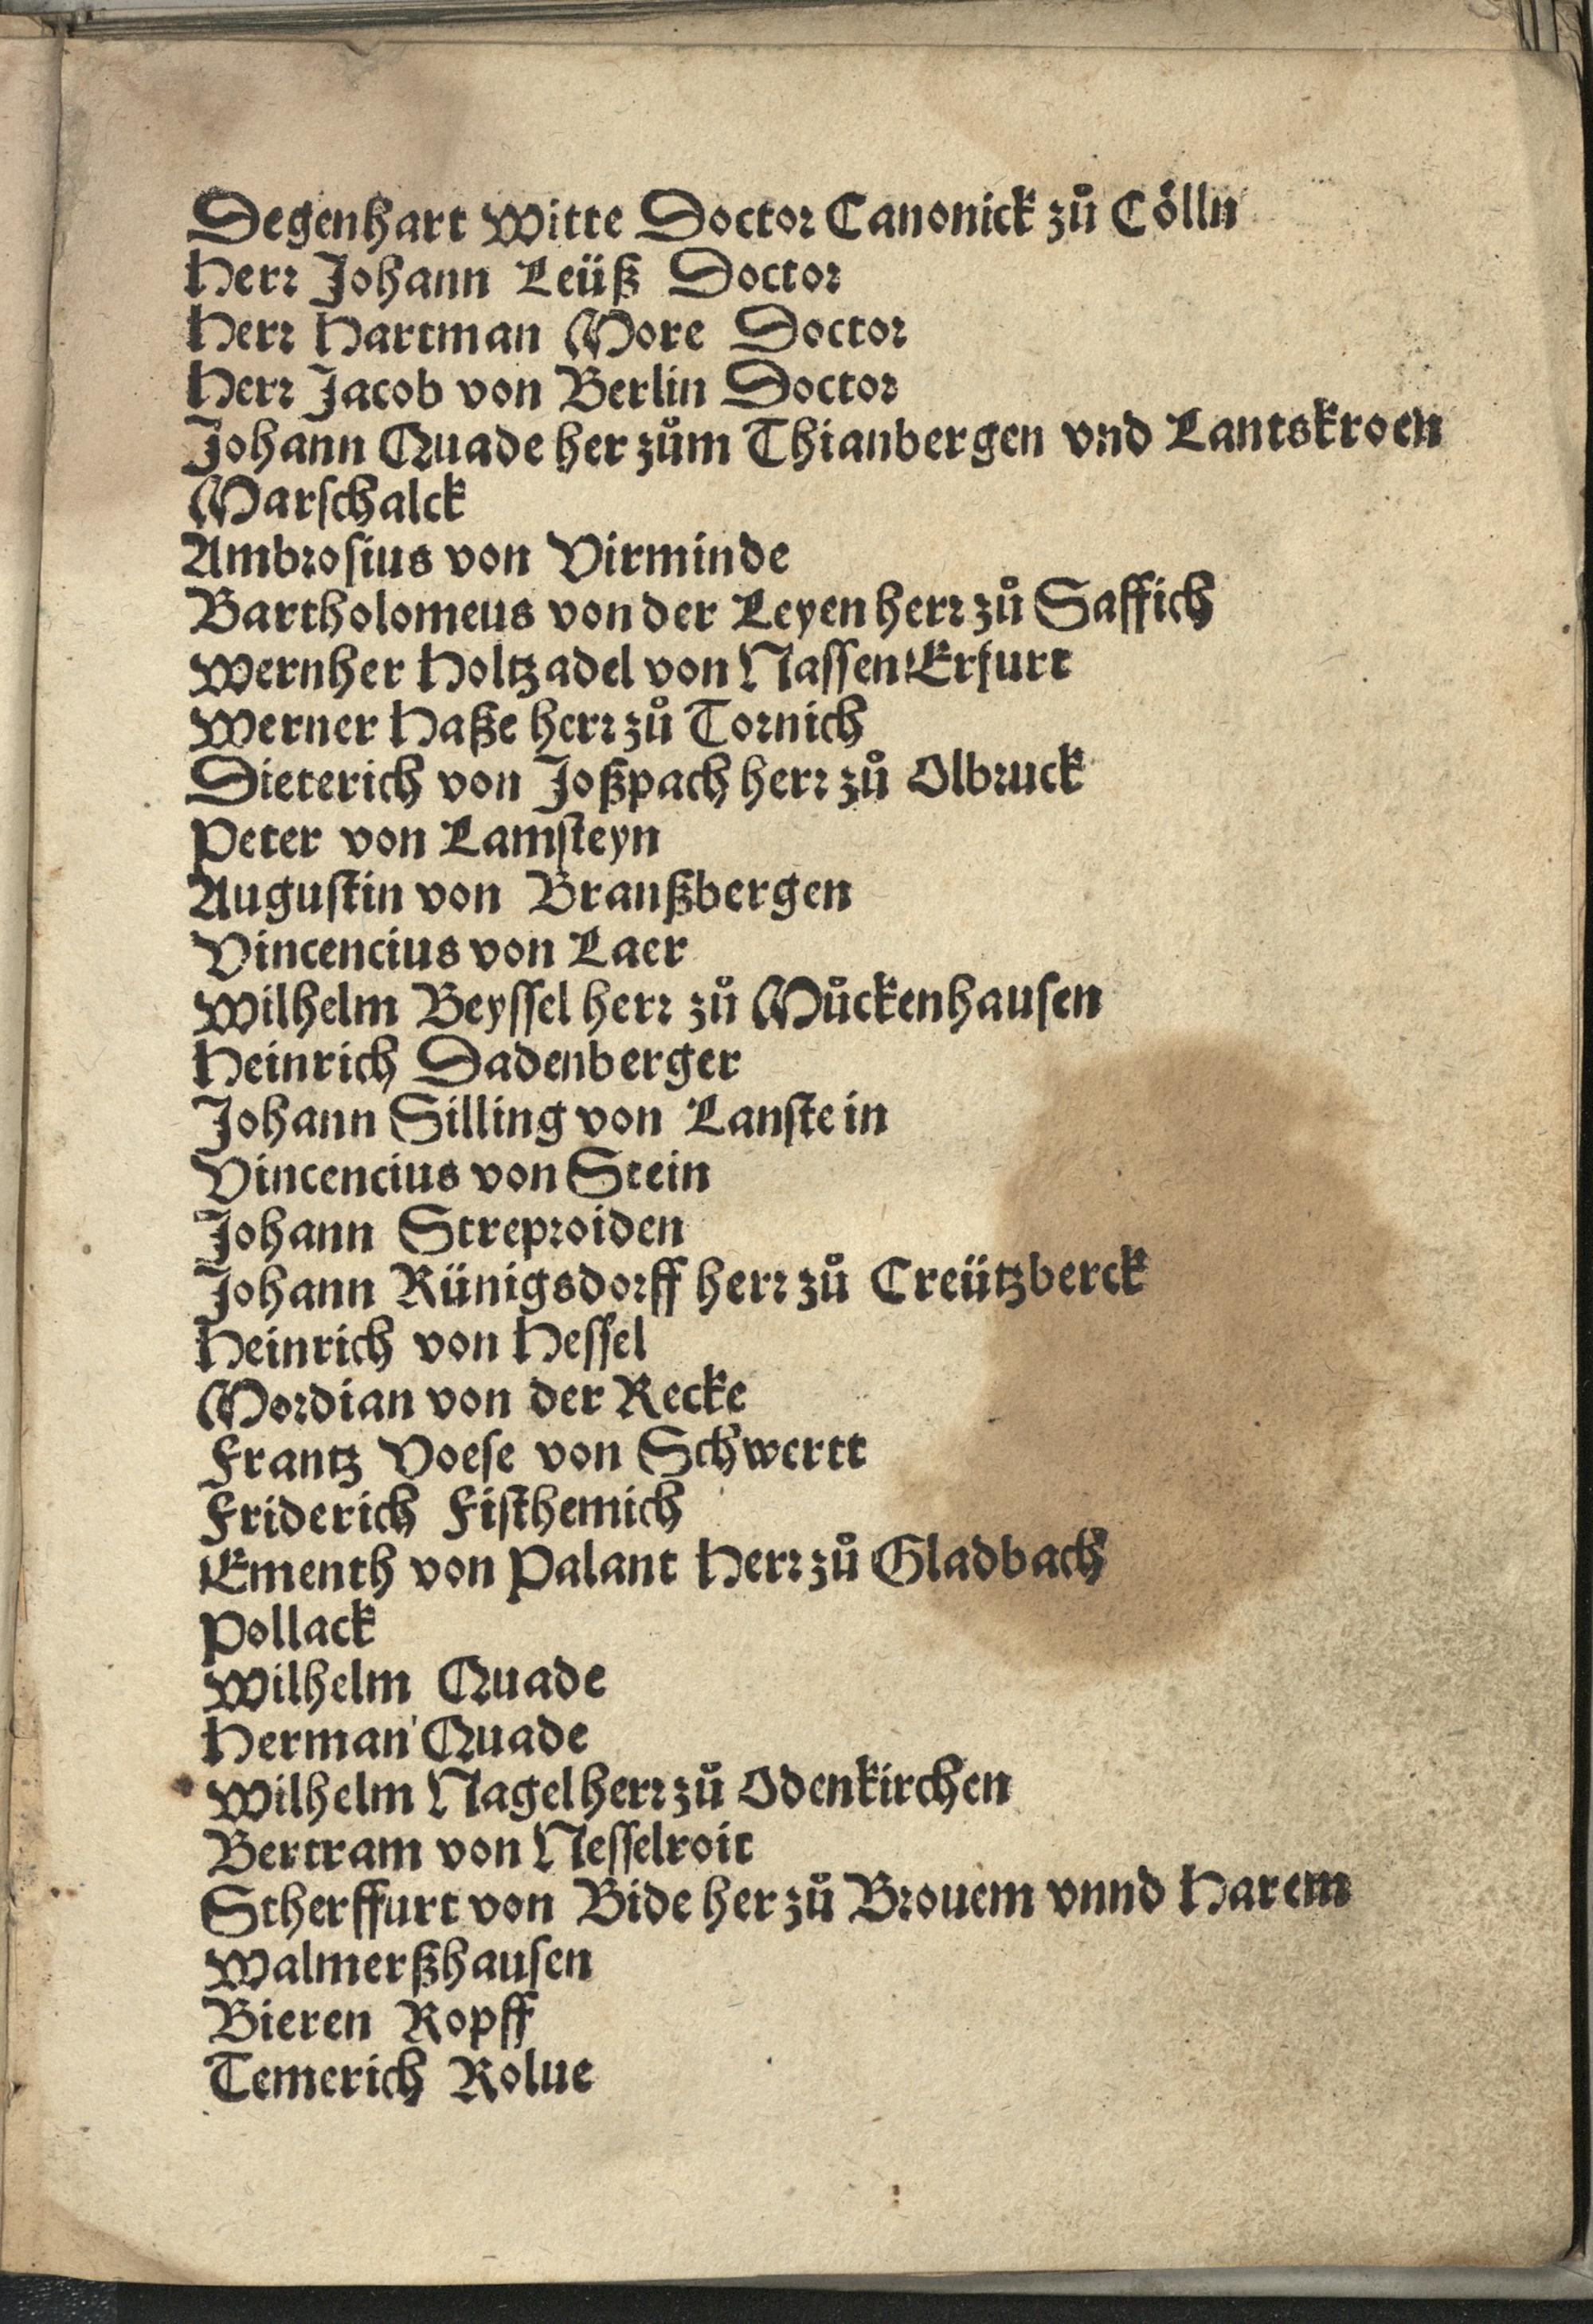 Degenhart Witte Doctor Canonick zů Cölln
Herr Johann Leüß Doctor
Herr Hartman More Doctor
Herr Jacob von Berlin Doctor
Johann Quade her zům Thianbergen vnd Lantskroen
Marſchalck
Ambroſius von Virminde
Bartholomeus von der Leyen herr zů Saffich
Wernher Holtzadel von Naſſen Erfurt
Werner Haße herr zů Tornich
Dieterich von Joßpach herr zů Olbruck
Peter von Lamſteyn
Auguſtin von Braußbergen
Vincencius von Laer
Wilhelm Beyſſel herr zů Můckenhauſen
Heinrich Dadenberger
Johann Silling von Lanſtein
Vincencius von Stein
Johann Streproiden
Johann Rünigsdorff herr zů Creützberck
Heinrich von Heſſel
Mordian von der Recke
Frantz Voeſe von Schwertt
Friderich Fiſthemich
Ementh von Palant Herr zů Gladbach
Pollack
Wilhelm Quade
Herman Quade
Wilhelm Nagel herr zů Odenkirchen
Bertram von Neſſelroit
Stherffurt von Bide her zů Brouem vnnd Harem
Walmerßhauſen
Bieren Ropff
Temerich Rolue